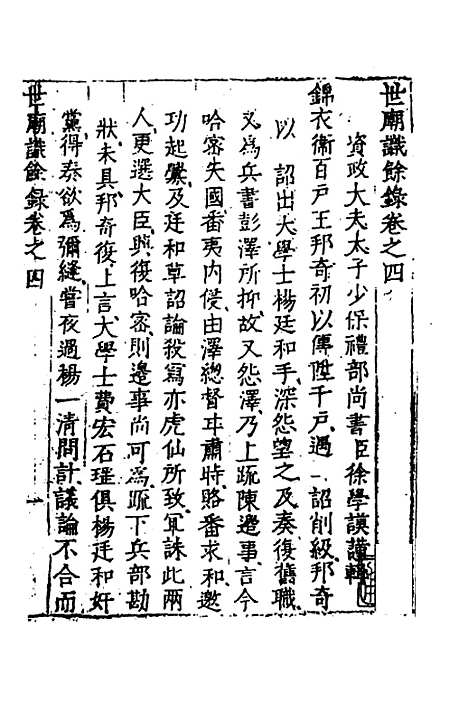 世廟識餘錄卷之四
資政大夫太子少保禮部尚書臣徐學謨謹輯
錦衣衛百戶王邦奇初以傳陞千戶遇詔削級邦奇
以詔出大學士楊廷和手深怨望之及奏復舊職
又爲兵書彭澤所抑故又怨澤乃上疏陳邊事言今
哈密失國番夷内侵由澤總督甘肅時賂番求和邀
功起釁及廷和草詔論殺寫亦虎仙所致冝誅此兩
人更選大臣興復哈密則邊事尚可爲疏下兵部勘
狀未具邦奇復上言大學士費宏石珤俱楊廷和奸
黨得奏欲爲彌縫嘗夜過楊一清問計議論不合而
世廟識餘錄卷之四
一